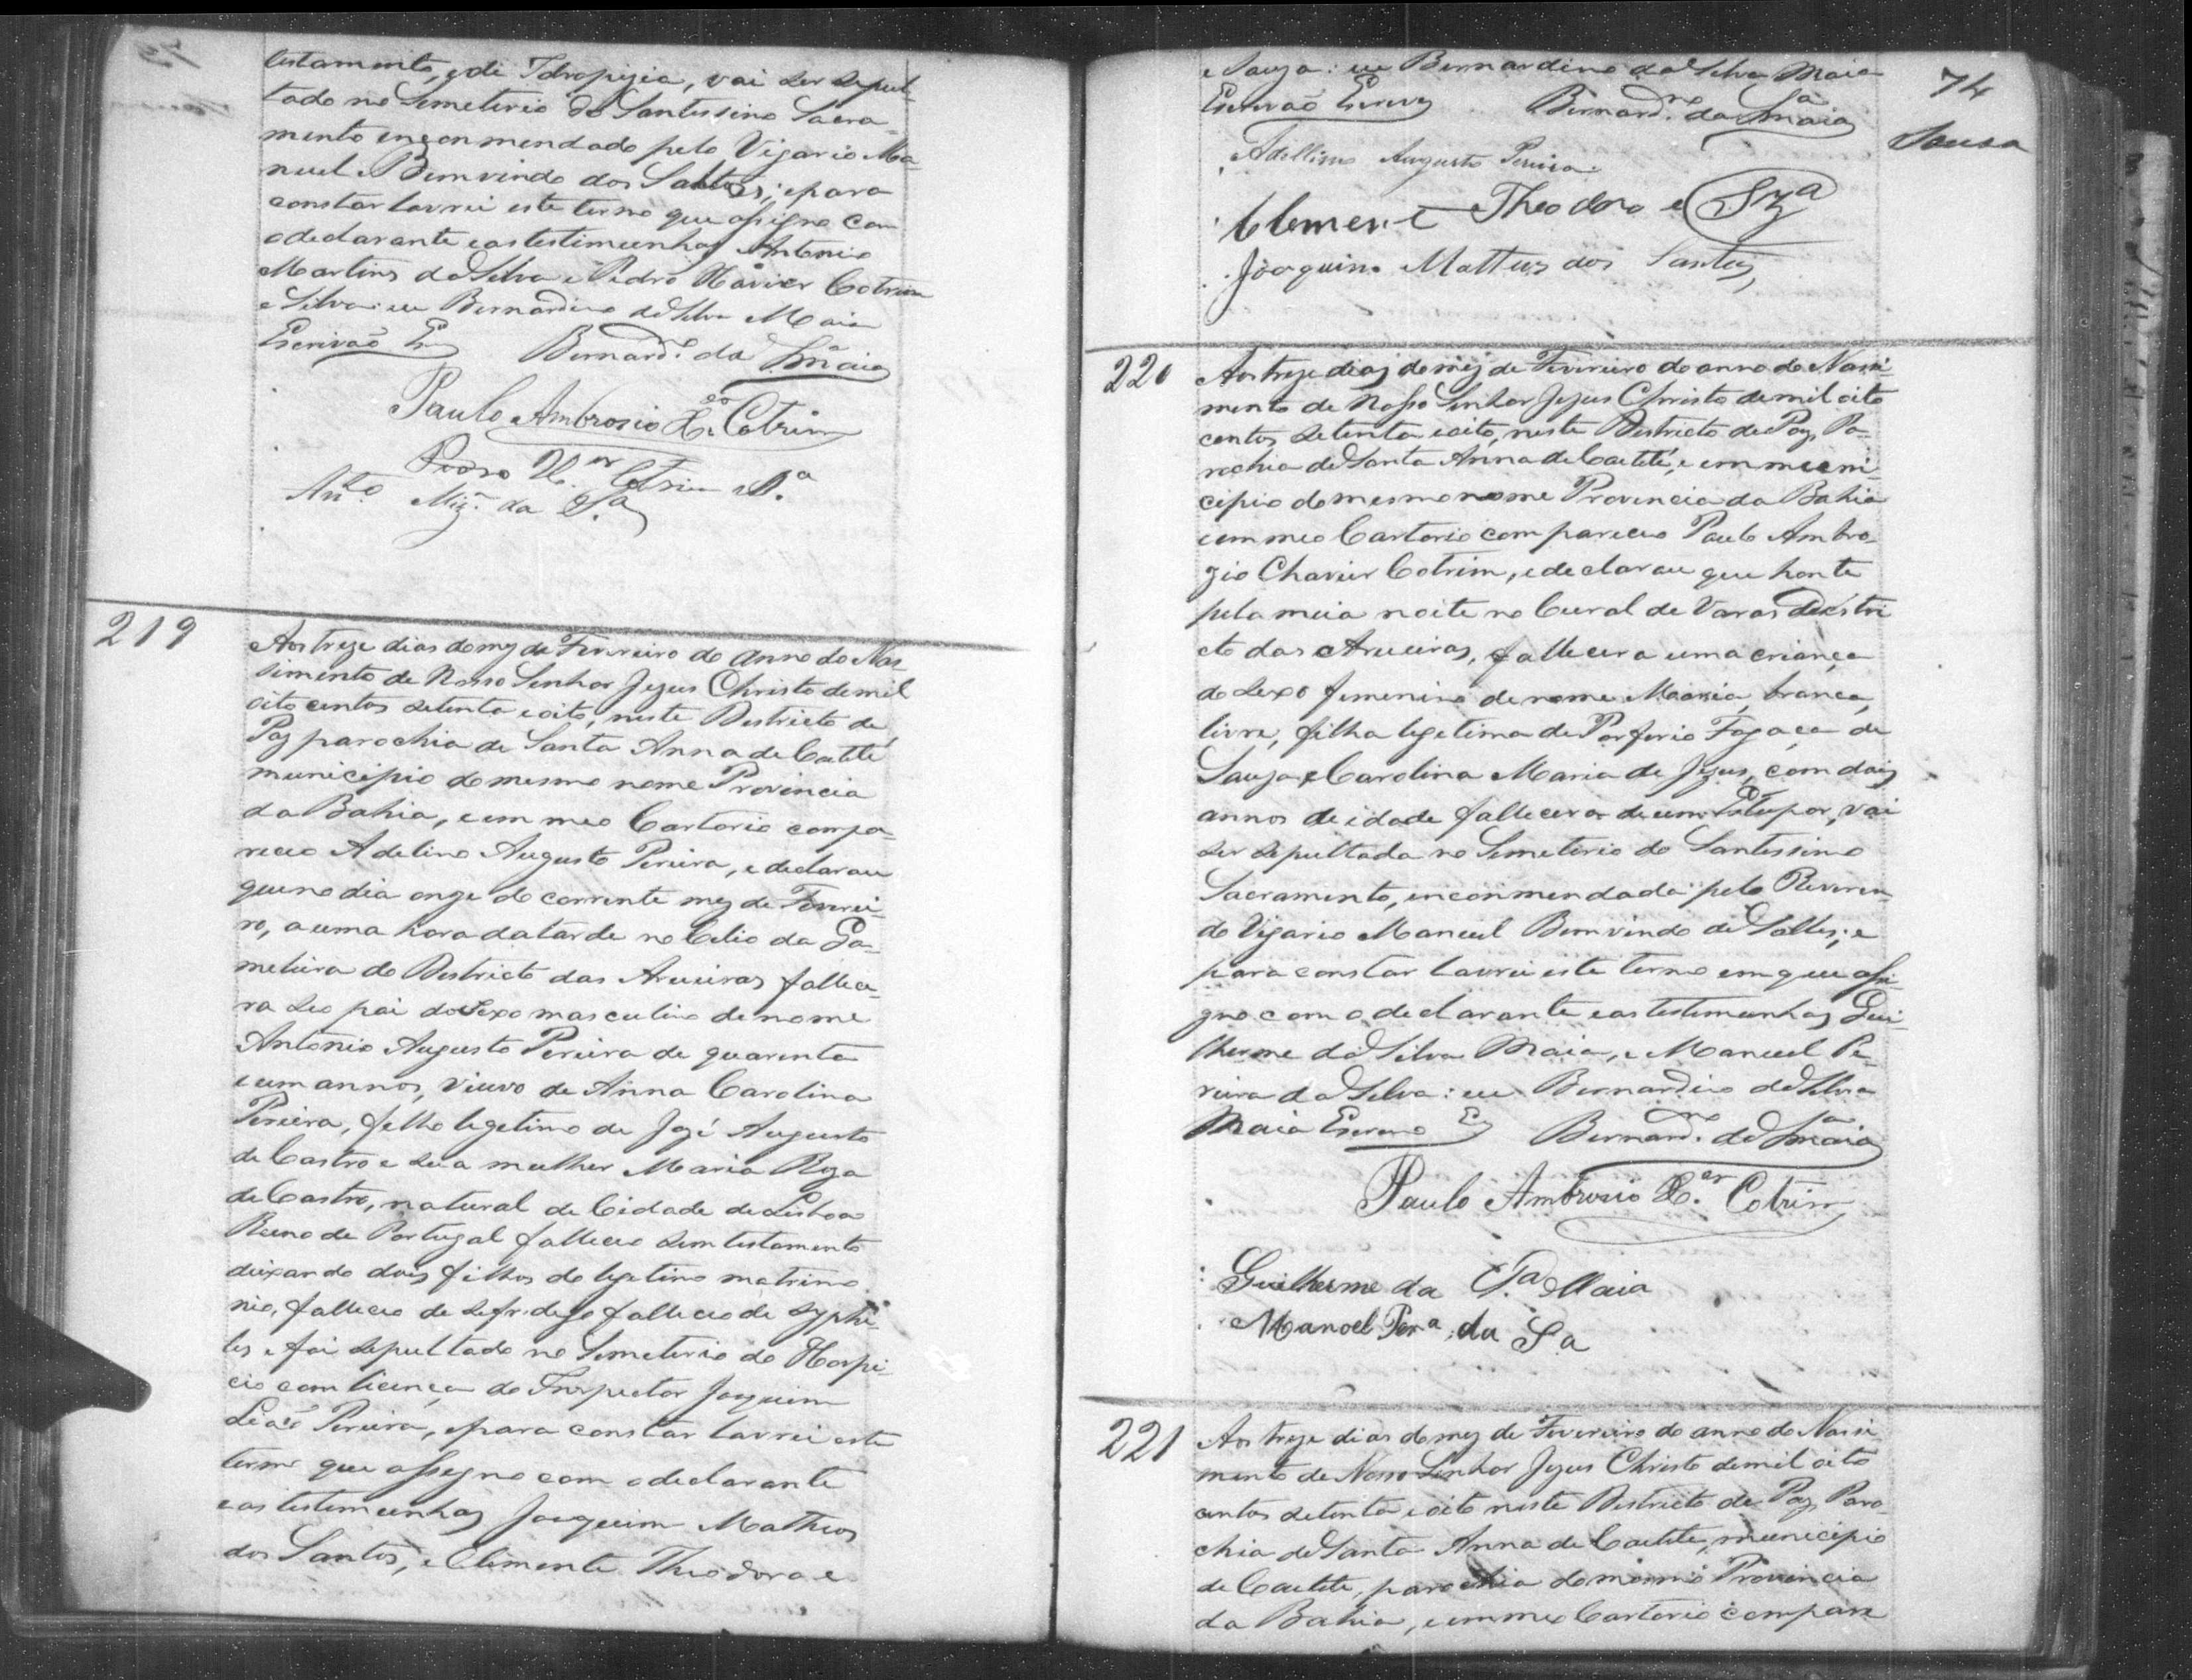 testamento, e de Idropizia, vai ser sepul-
tado no Semeterio do Santissimo Sacra-
mento enconmendado pelo Vigario Ma-
nuel Bemvindo dos Salles; e para
constar lavrei este termo que assigno com
o declarante e as testimunhas Antonio
Martins da Silva e Pedro Xavier Cotrim
e Silva: eu Bernardino da Silva Maia
Escrivaõ Es
Bernard.no da S.a Maia
Paulo Ambrosio X.er Cotrim
Pedro X.er Cotrim e S.a
Ant.o Miz. da S.a
219
Aos treze dias do mez de Fevereiro do anno do Nas-
simento de Nosso Senhor Jezus Christo de mil
oito centos setenta e oito, neste Destricto de
Paz parochia de Santa Anna de Caetité
municipio do mesmo nome Provincia
da Bahia, e em meo Cartorio compa-
receo Adelino Augusto Pereira, e declarou
que no dia onze do corrente mez de Feverei-
ro, a uma hora da tarde no Citio da Ga-
meleira do Destricto das Arueiras fallece-
ra seo pai do sexo masculino de nome
Antonio Augusto Pereira de quarenta
e um annos, viuvo de Anna Carolina
Pereira, filho legetimo de Jozé Augusto
de Castro e sua mulher Maria Roza
de Castro, natural de Cidade de Lisboa
Reino de Portugal falleceo sem testamento
deixando dois filhos do legetimo matrimo-
nio, falleceo de digo falleceo de syphi-
les e foi sepultado no Semeterio do Hospi-
cio com licença do Inspector Joaquim
Leaõ Pereira, e para constar lavrei este
termo que assegno com o declarante
e as testemunhas Joaquim Matheos
dos Santos, e Clemente Theodoro e
74
Sousa
e Souza: eu Bernardino da Silva Maia
Escrivaõ Escrevy
Bernard.no da S.a Maia
Adellino Augusto Pereira
Clement Theodoro e Sza
Joaquim Matteus dos Santos
220
Aos treze dias do mez de Fevereiro do anno do Nassi-
mento de Nosso Senhor Jezus Christo de mil oito
centos setenta e oito, neste Destricto de Paz, Pa-
rochia de Santa Anna de Caetité, e em muni-
cipio do mesmo nome Provencia da Bahia
e em meo Cartorio compareceo Paulo Ambro-
zio Chavier Cotrim, e declarou que honte
pela meia noite no Cural de Varas Destri
cto das Arueiras, fallecera uma criança
do sexo femenino de nome Maria, branca,
livre, filha legetima de Porferio Fogaça de
Souza, e Carolina Maria de Jezus, com dois
annos de idade fallecera de um Estupor, vai
ser sepultada no Semeterio do Santissimo
Sacramento, enconmendada pelo Reveren-
do Vigario Manuel Bemvindo de Salles; e
para constar lavrei este termo em que assi-
gno com o declarante e as testemunhas Gui-
lherme da Silva Maia, e Manuel Pe-
reira da Silva: eu Bernardino da Silva
Maia Escrivaõ
Bernard.no da S.a Maia
Paulo Ambrosio X.er Cotrim
Guilherme da S.a Maia
Manoel Per.a da S.a
221
Aos treze dias do mez de Fevereiro do anno do Nassi
mento de Nosso Senhor Jezus Christo de mil oito
centos setenta e oito neste Destricto de Paz, Paro-
chia de Santa Anna de Caetite, municipio
de Caetite, parochia do mesmo Provincia
da Bahia, e em meo Cartorio compare